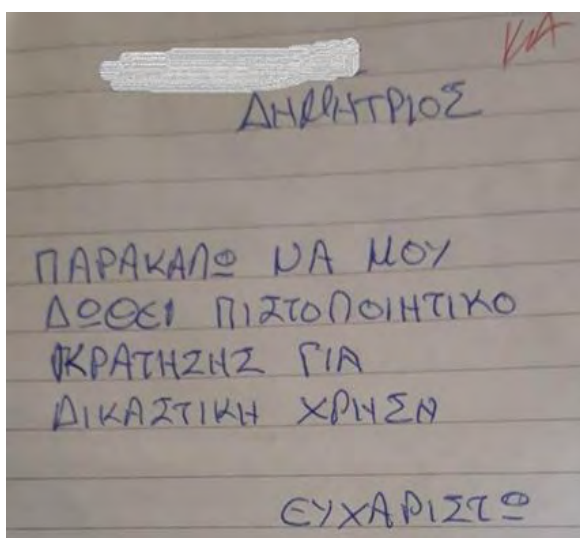 ΚΑ
ΔΗΜΗΤΡΙΟΣ
ΠΑΡΑΚΑΛΩ ΝΑ ΜΟΥ
ΔΩΘΕΙ ΠΙΣΤΟΠΟΙΗΤΙΚΟ
ΚΡΑΤΗΣΗΣ ΓΙΑ
ΔΙΚΑΣΤΙΚΗ ΧΡΗΣΗ
ΕΥΧΑΡΙΣΤΩ